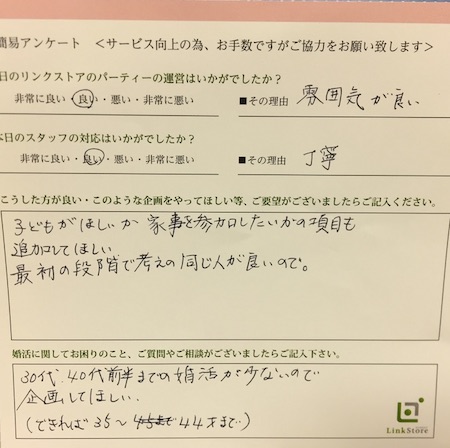 簡易アンケート ＜サービス向上の為、お手数ですがご協力をお願い致します＞
日のリンクストアのパーティーの運営はいかがでしたか？
非常に良い・良い・悪い・非常に悪い ■その理由 雰囲気が良い
本日のスタッフの対応はいかがでしたか？
非常に良い・良い・悪い・非常に悪い ■その理由 丁寧
こうした方が良い・このような企画をやってほしい等、ご要望がございましたらご記入ください。
子どもがほしいか 家事を参加したいかの項目も
追加してほしい
最初の段階で考えの同じ人が良いので。
婚活に関してお困りのこと、ご質問やご相談がございましたらご記入下さい。
30代、40代前半までの婚活が少ないので
企画してほしい。
(できれば35～44才まで)
LinkStore